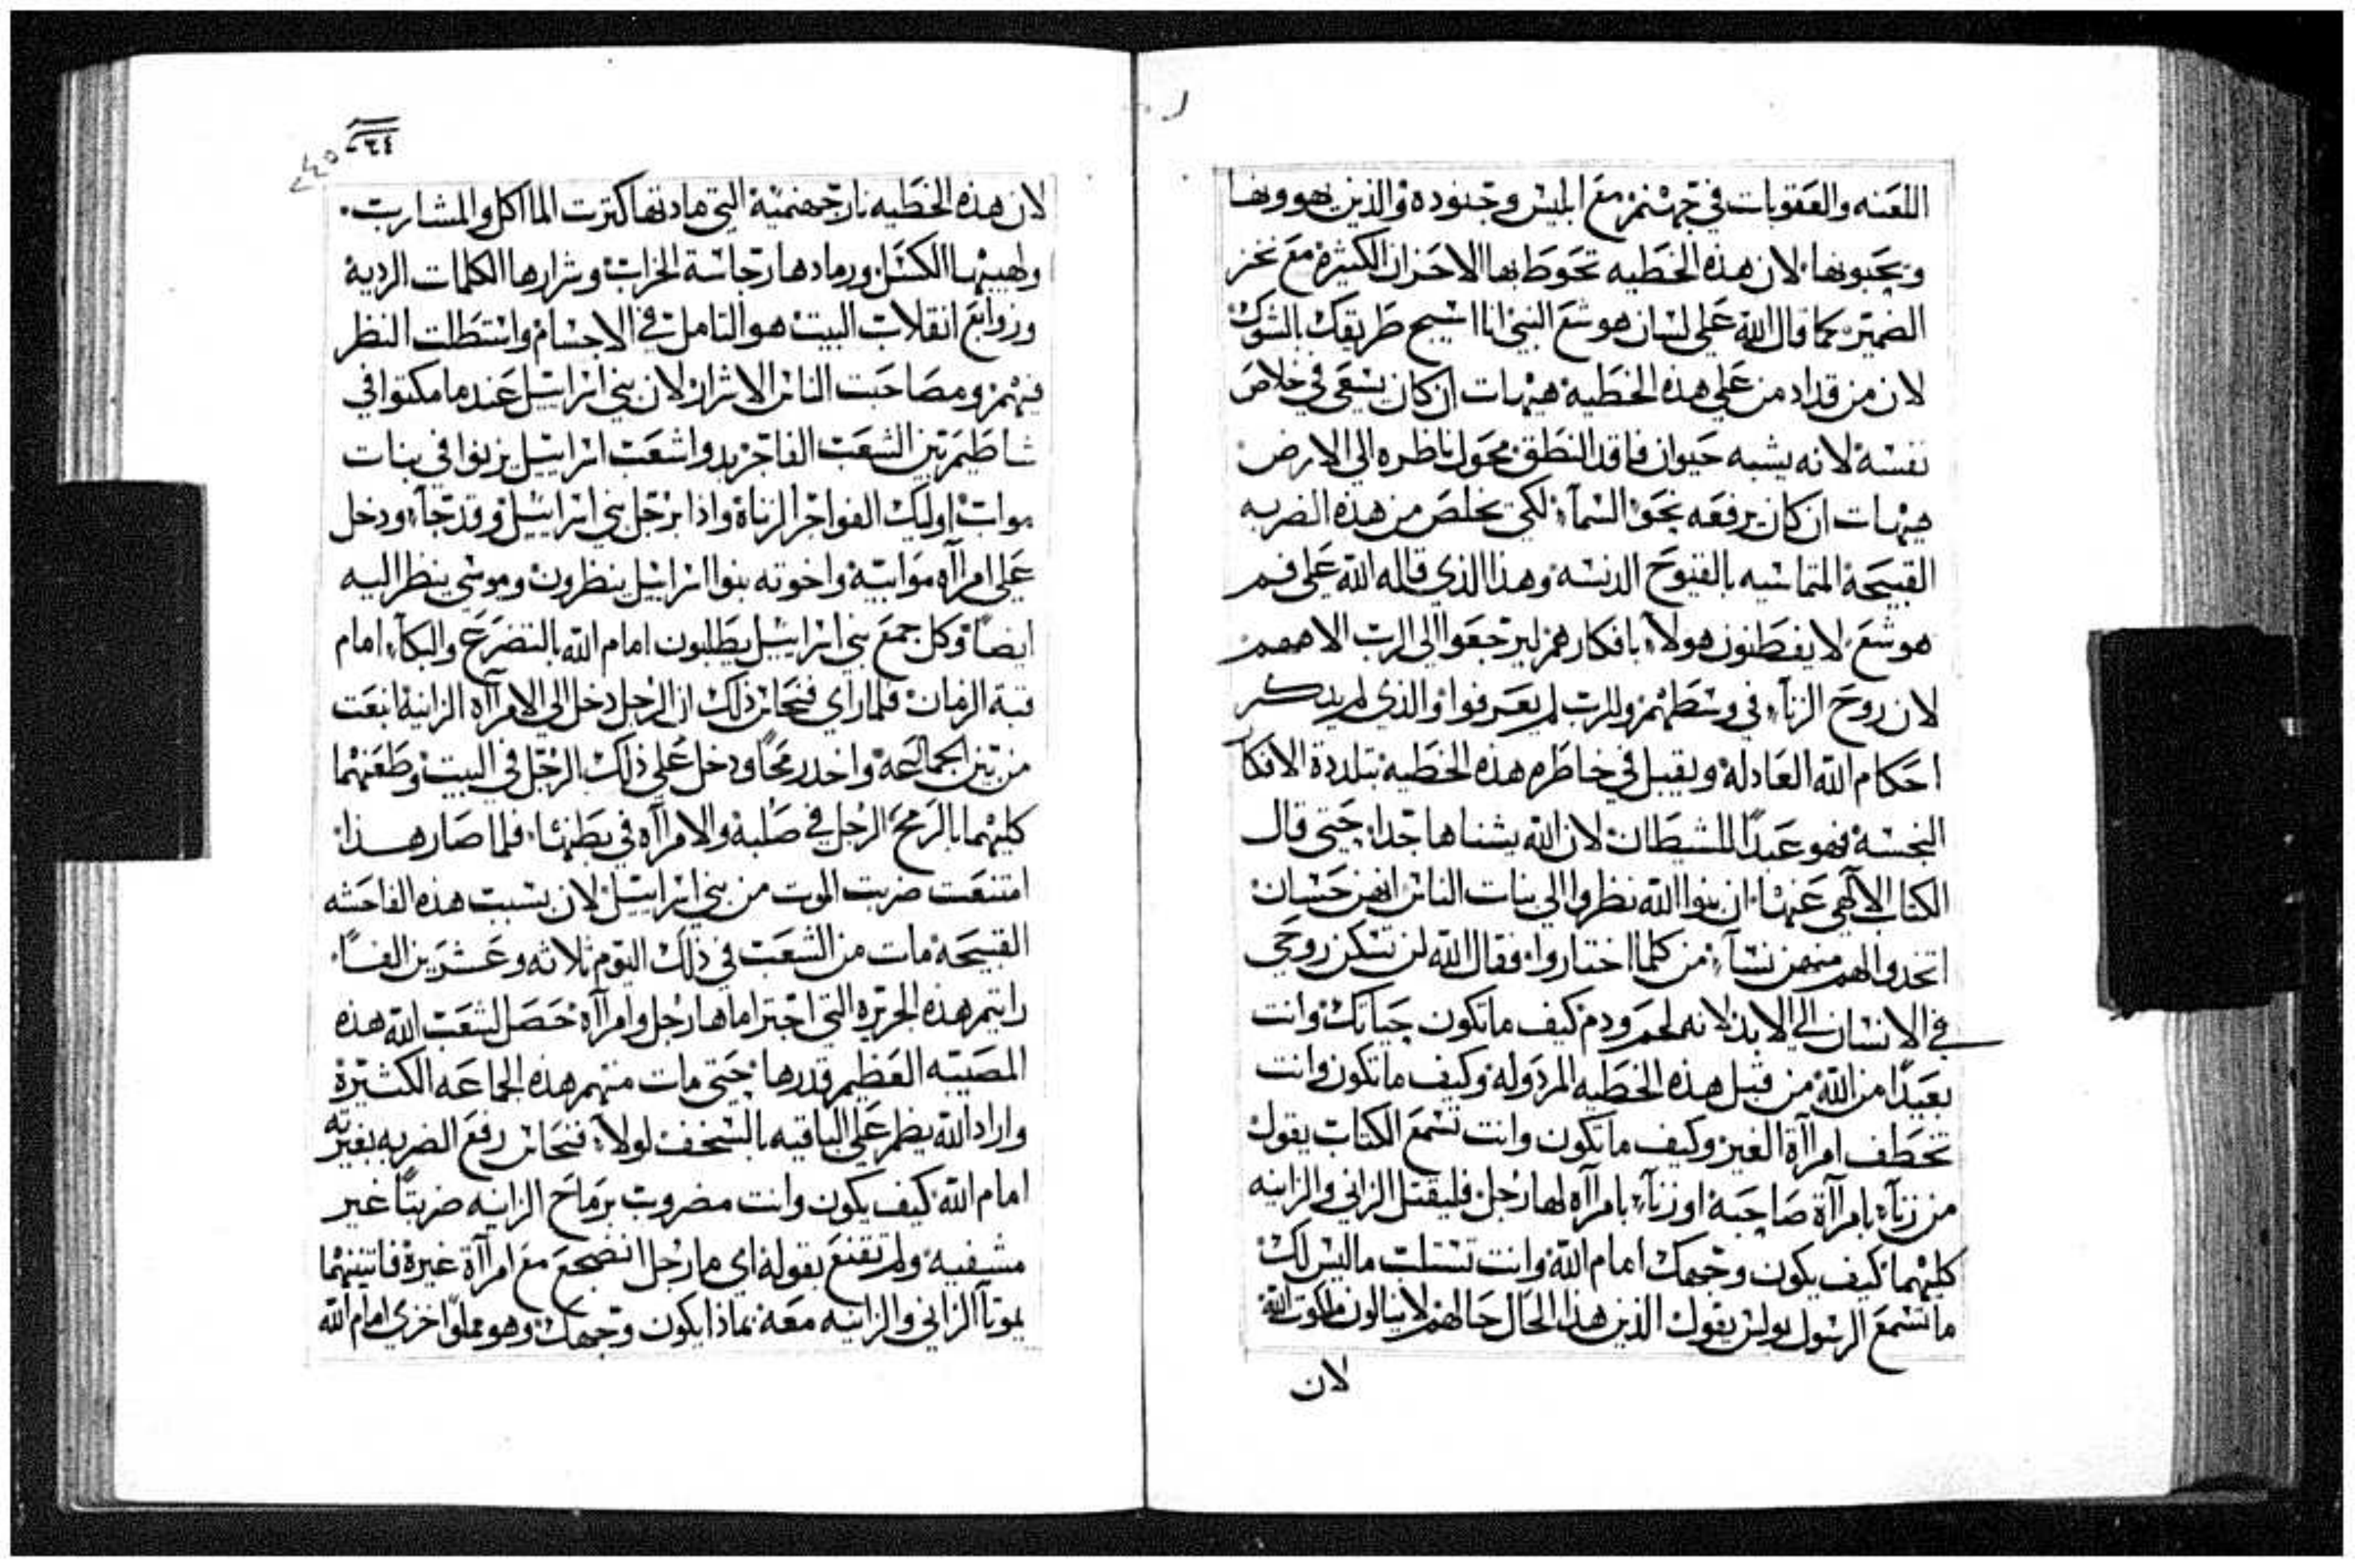 اللعنه والعقوبات في جهنم مع ابليس وجنوده والذين يهوونها
ويحبونها لان هذه الخطيه تحوط بها الاحزان الكثيرة مع نخز
الضمير كما قال الله على لسان هوشع النبي انا اسيج طريقك بالشوك
لان من قد ادمن على هذه الخطية هيهات ان كان يسعى في خلاص
نفسة لانه يشبه حيوان فاقد النطق محول ناظره الى الارض
هيهات ان كان يرفعه نحو السمآء لكي يخلص من هذه الضربه
القبيحة المتماسيه بالقيوح الدنسه وهذا الذي قاله الله على فم
هوشع لا يفطنون هولآء بافكارهم ليرجعوا الى الرب الاههم
لان روح الزنآء في وسطهم وللرب لم يعرفوا والذي لم يدكر
احكام الله العادلة ويقبل في خاطره هذه الخطية بتلددة الافكار
النجسة فهو عبدًا للشيطان لان الله يشناها جدا حتى قال
الكتاب الالآهي عنها ان بنوا الله نظروا الى بنات الناس انهن حسان
اتخدوا لهم منهن نسآء من كلما اختاروا فقال الله لن تسكن روحي
في الانسان الى الابد لانه لحم ودم كيف ماتكون حياتك وانت
بعيدًا من الله من قبل هذه الخطيه المردوله وكيف ماتكون وانت
تخطف امراآة الغير وكيف ماتكون وانت تسمع الكتاب يقول
من زنآء بامراآة صاحبة اوزنآء بامرآاه لها رجل فليقتل الزاني والزانيه
كليهما كيف يكون وجهك امام الله وانت تستلب ماليس لك
ما تسمع الرسول بولس يقول الذين هذا الحال حالهم لا ينالون ملكوت الله
لان
٢٤٠
٢٤٥
لان هذه الخطيه نار جهنمية التي مادتها كترت الماكل والمشارب
ولهيبها الكسل ورمادها رجاسة الخراب وشرارها الكلمات الردية
وزوابع انقلاب البيت هو التامل في الاجسام واستطلت النظر
فيهم ومصاحبت الناس الاشرار لان بني اسراييل عندما مكتوا في
شاطيم بين الشعب الفاجر بدوا شعب اسراييل يزنوا في بنات
مواب اوليك الفواجر الزناة واذا برجل بني اسراييل وقد جآء ودخل
على امراآه موابية واخوته بنوا اسراييل ينظرون وموسى ينظر اليه
ايضًا وكل جمع بني اسراييل يطلبون امام الله بالتضرع والبكآء امام
قبة الزمان فلما راى فنحاس ذلك ان الرجل دخل الى الامراآه الزانية انبعت
من بين الجماعة واخد رمحًا ودخل على ذلك الرجل في البيت وطعنهما
كليهما بالرمح الرجل في صلبة والامراآه في بطنها فلما صار هذا
امتنعت ضربت الموت من بني اسراييل لان بسبب هذه الفاحشه
القبيحة مات من الشعب في ذلك اليوم ثلاثه وعشرين الفًا
رايتم هذه الجريره التي اجترامها رجل وامراآة حصل لشعب الله هذه
المصيبه العظيم قدرها حتى مات منهم هذه الجماعه الكثيرة
واراد الله يطمر على الباقيه بالسخف لولآء فنحاس رفع الضربه بغيرته
امام الله كيف يكون وانت مضروب برماح الزانيه ضربتًا غير
مشفيه ولم تقنع بقولة اي ما رجل انضجع مع امراآة غيرة فاتنينهما
يموتآ الزاني والزانيه معه بماذا يكون وجهك وهو مملوا خزي امام الله